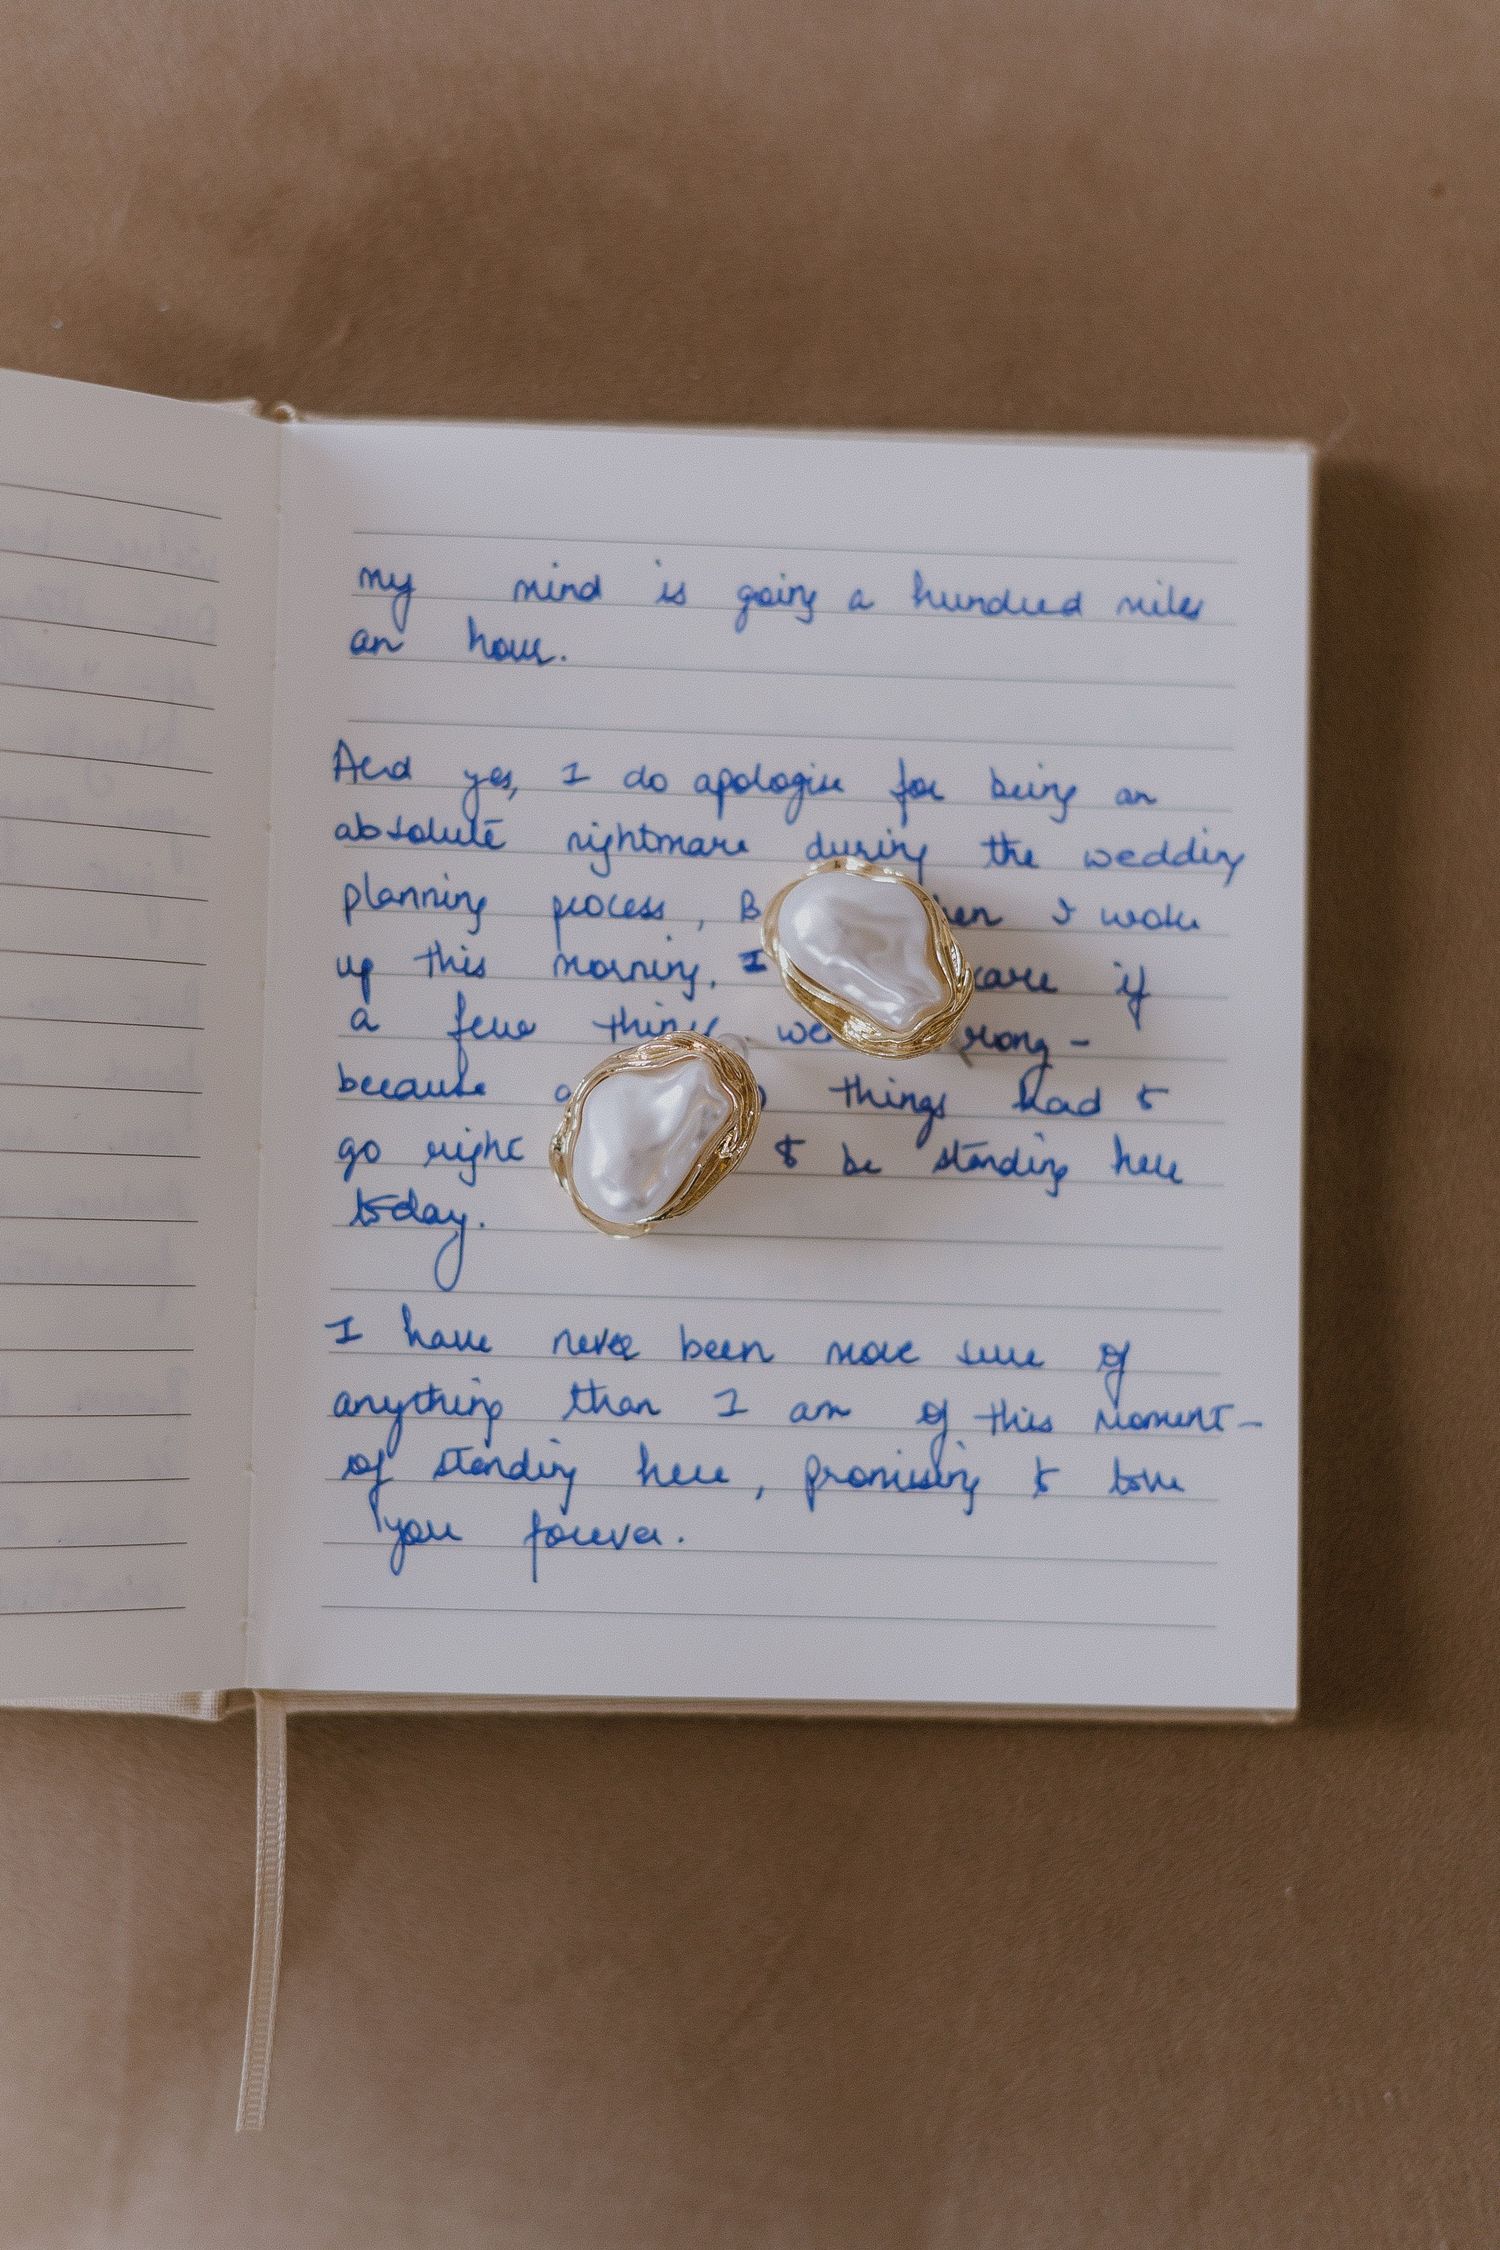 my mind is going a hundred miles
an hour.
And yes, I do apologise for being an
absolute nightmare during the wedding
planning process, B en I woke
up this morning, I care if
a few things we rong -
because a things had to
go right to be standing here
today.
I have never been more sure of
anything than I am of this moment-
of standing here, promising to love
you forever.